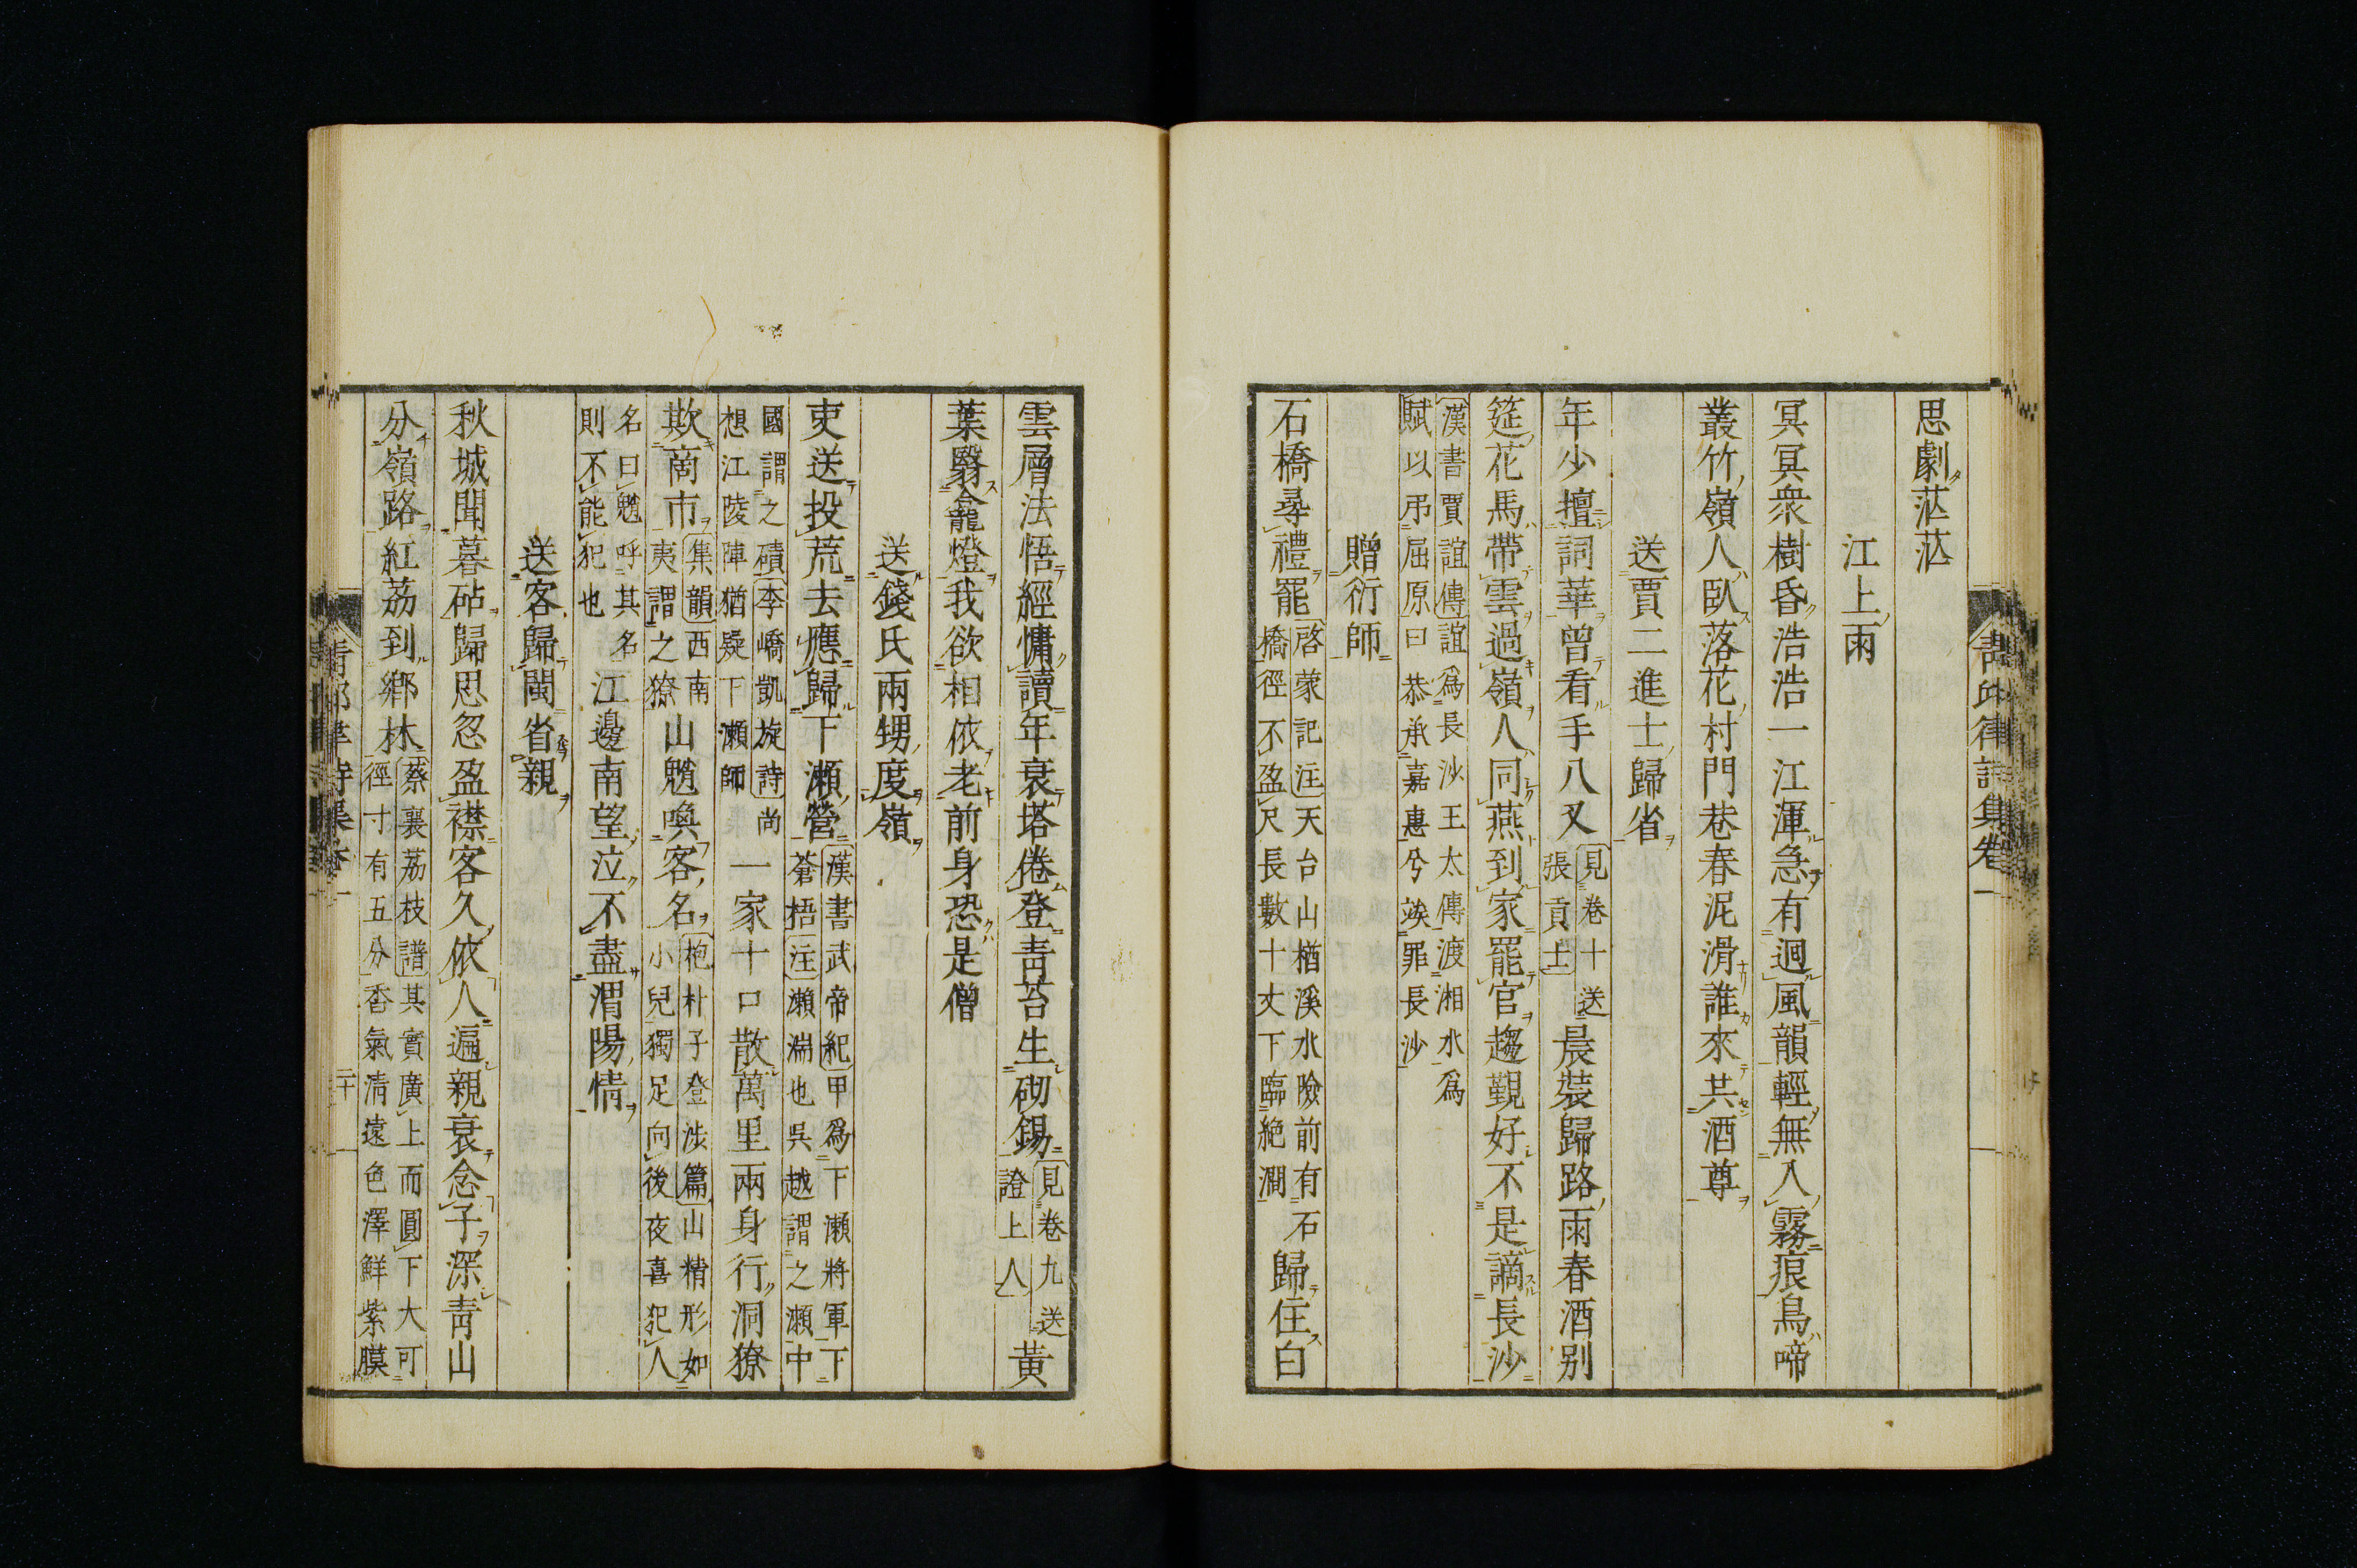 思劇茫茫
江上雨
冥冥衆樹昏浩浩一江渾急有迴風韻輕無入霧痕鳥啼
叢竹嶺人臥落花村門巷春泥滑誰來共酒尊
送賈二進士歸省
年少擅詞華曾看手八叉見卷十送張貢士晨裝歸路雨春酒別
筵花馬帶雲過嶺人同燕到家罷官趨覲好不是謫長沙
漢書賈誼傳誼爲長沙王太傳渡湘水爲
賦以弔屈原曰恭承嘉惠兮竢罪長沙
贈衍師
石橋尋禮罷啓蒙記注天台山楢溪水險前有石橋徑不盈尺長數十丈下臨絶澗歸住白
青邱律詩集卷一
雲層法悟經慵讀年衰塔倦登靑苔生砌錫見卷九送證上人黃
葉翳龕燈我欲相依老前身恐是僧
送錢氏兩甥度嶺
吏送投荒去應歸下瀨營漢書武帝紀甲爲下瀨將軍下蒼梧注瀨湍也吳越謂之瀨中
國謂之磧李嶠凱旋詩尚
想江陵陣猶疑下瀨師
一家十口散萬里兩身行洞獠
欺商市集韻西南夷謂之獠山魈喚客名抱朴子登涉篇山精形如小兒獨足向後夜喜犯人
名曰魈呼其名
則不能犯也
江邊南望泣不盡渭陽情
送客歸閩省親
秋城聞暮砧歸思忽盈襟客久依人遍親衰念子深靑山
分嶺路紅荔到鄉林蔡襄荔枝譜其實廣上而圓下大可徑寸有五分香氣清遠色澤鮮紫膜
青邱律詩集卷一
二十